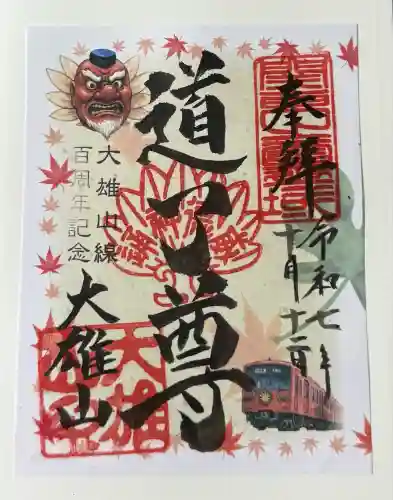 奉拝
令和七年
十月十二日
道了尊
大雄山線
百周年記念
大雄山